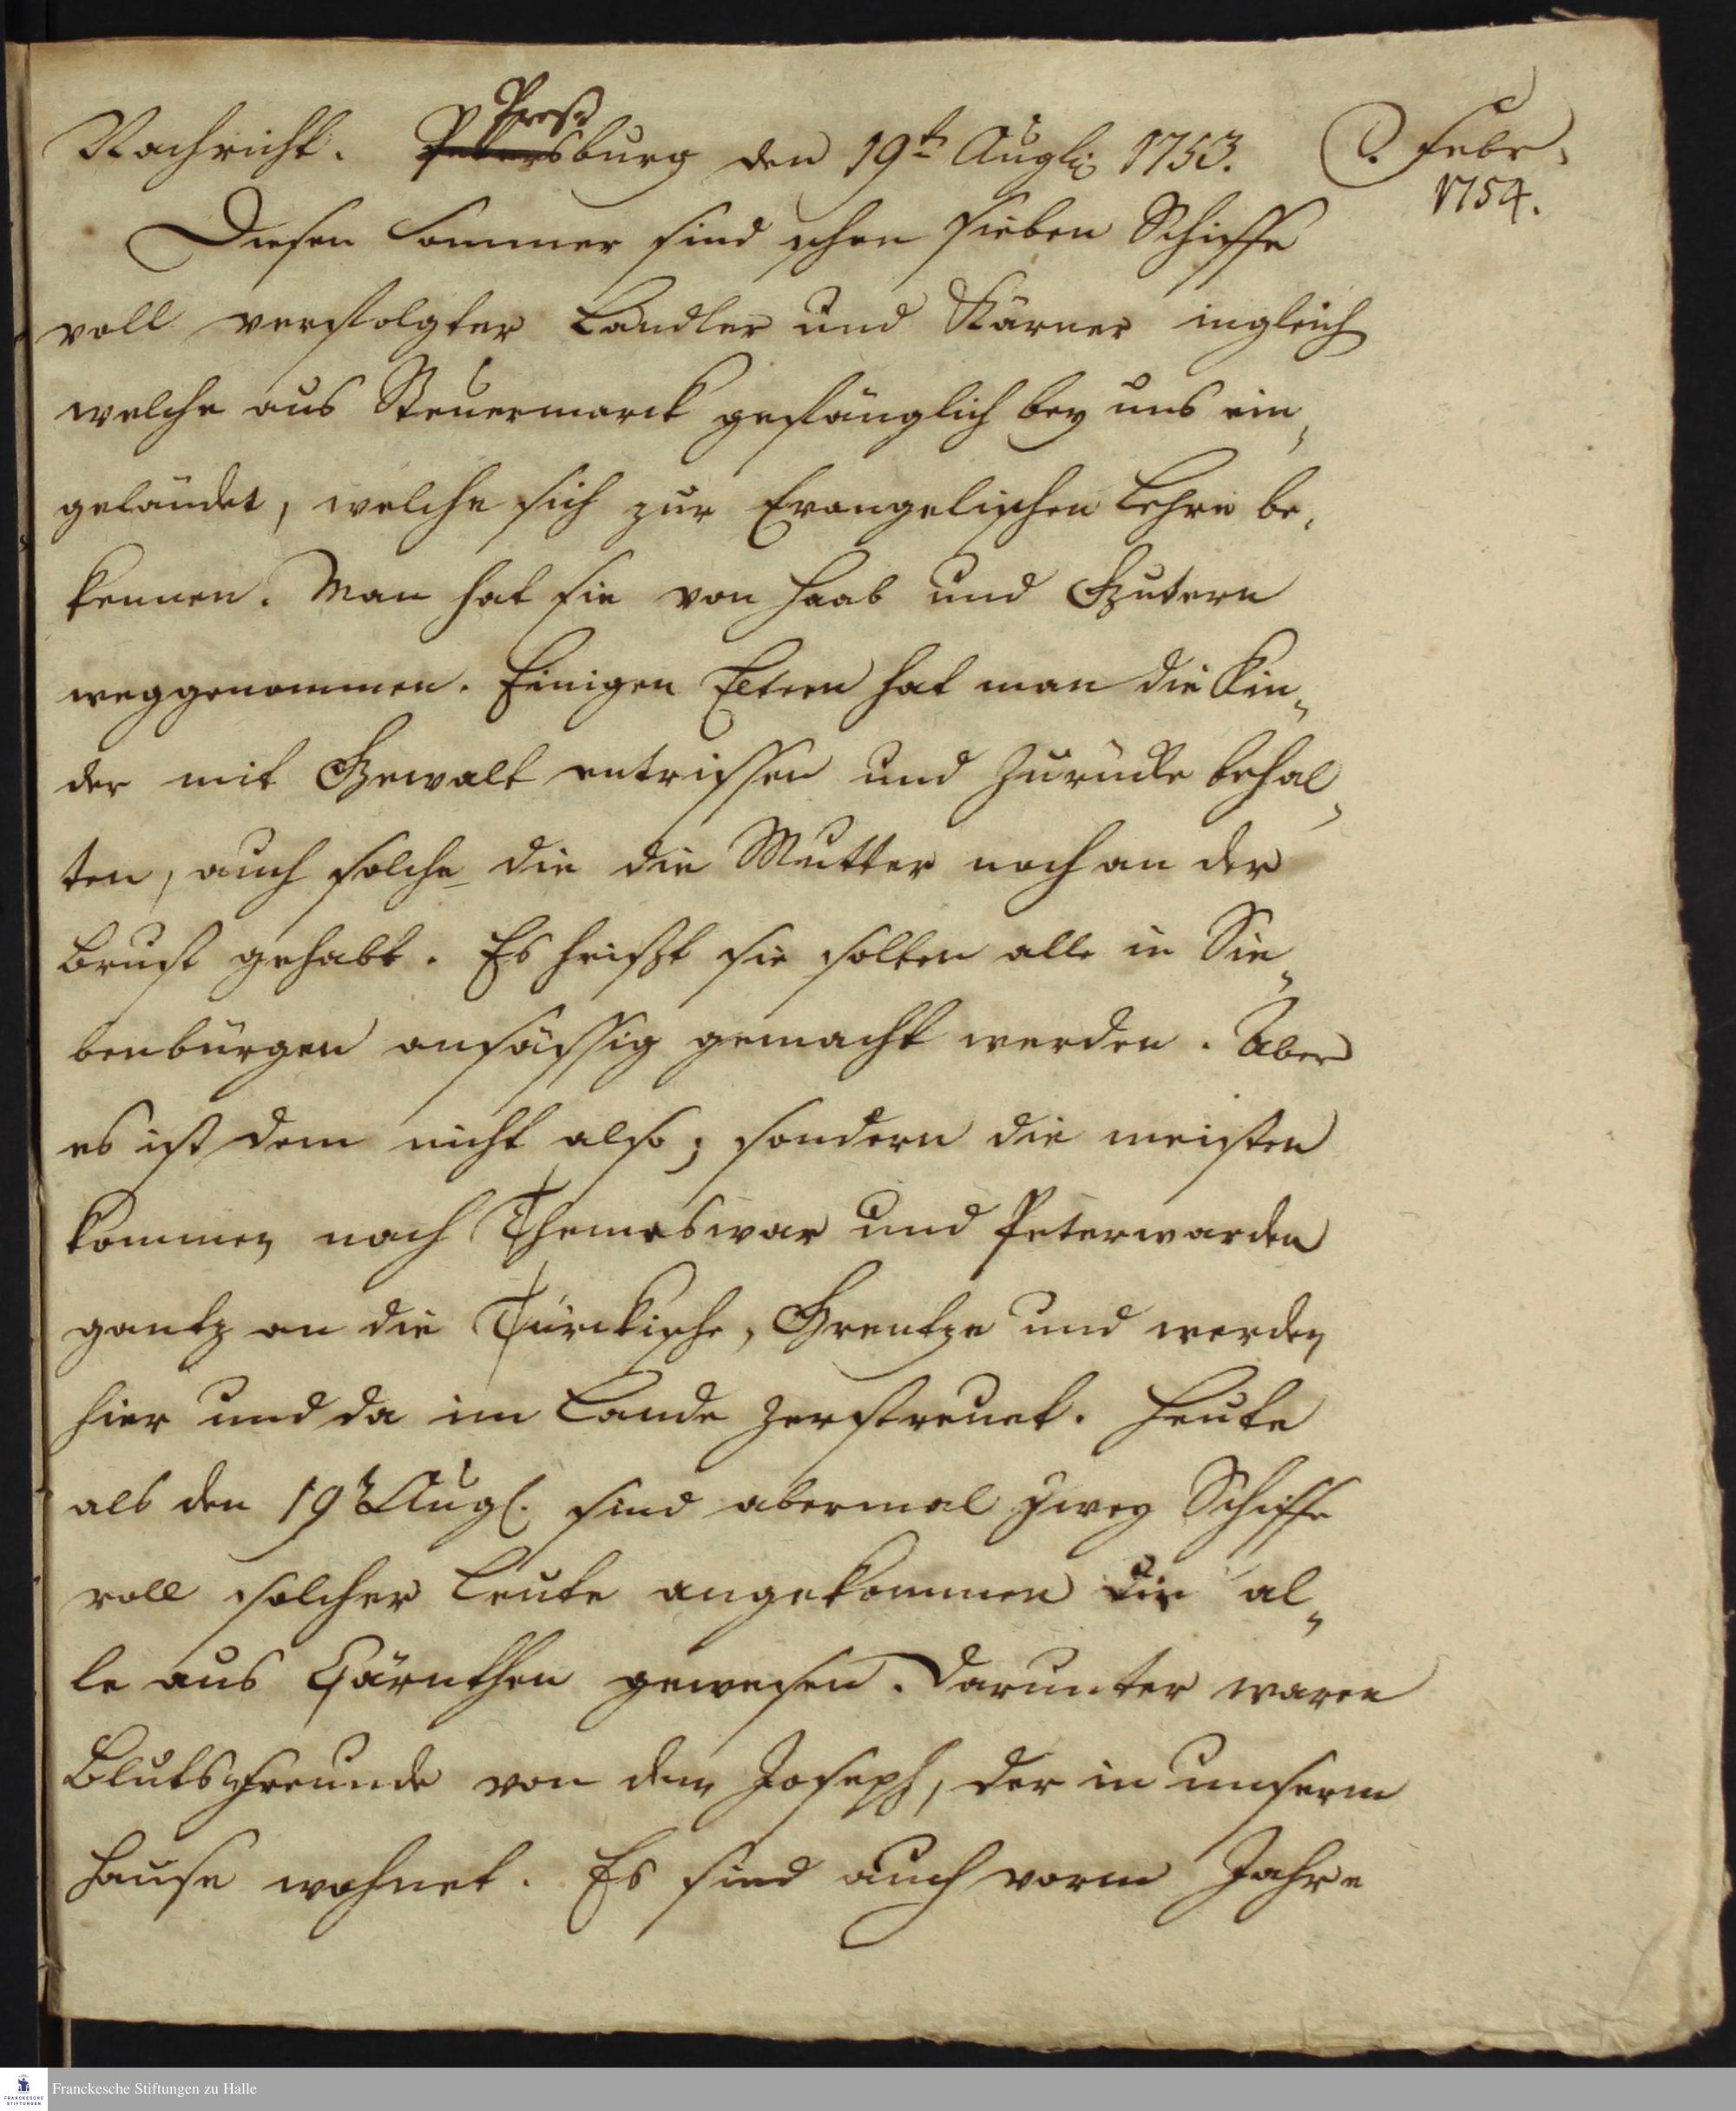 Nachricht. Petersburg den 19t Augli 1753. C. Febr.
Pres
1754.
Diesen Sommer sind schon sieben Schiffe
voll verfolgter Ländler und Kärner ingleich
welche aus Steuermarck gefänglich bey uns ein„
geländet, welche sich zur Evangelischen Lehre be„
kennen. Man hat sie von Haab und Gutern
weggenommen. Einigen Eltern hat man die Kin„
der mit Gewalt entrissen und zurücke behal„
ten, auch solche die die Mutter noch an der
Brust gehabt. Es heißt sie solten alle in Sie„
benbürgen ansässig gemacht werden. Aber
es ist dem nicht also; sondern die meisten
kommen nach Themeswar und Peterwarden
gantz an die Türckische, Grentze und werden
hier und da im Lande zerstreuet. Heute
als den 19t Augl. sind abermal zwey Schiffe
voll solcher Leute angekommen die al„
le aus Cärnthen gewesen. Darunter waren
Blutsfreunde von dem Joseph, der in unserm
Hause wohnet. Es sind auch vorm Jahre
Franckesche Stiftungen zu Halle
FRANCKESCHE
STIFTUNGEN